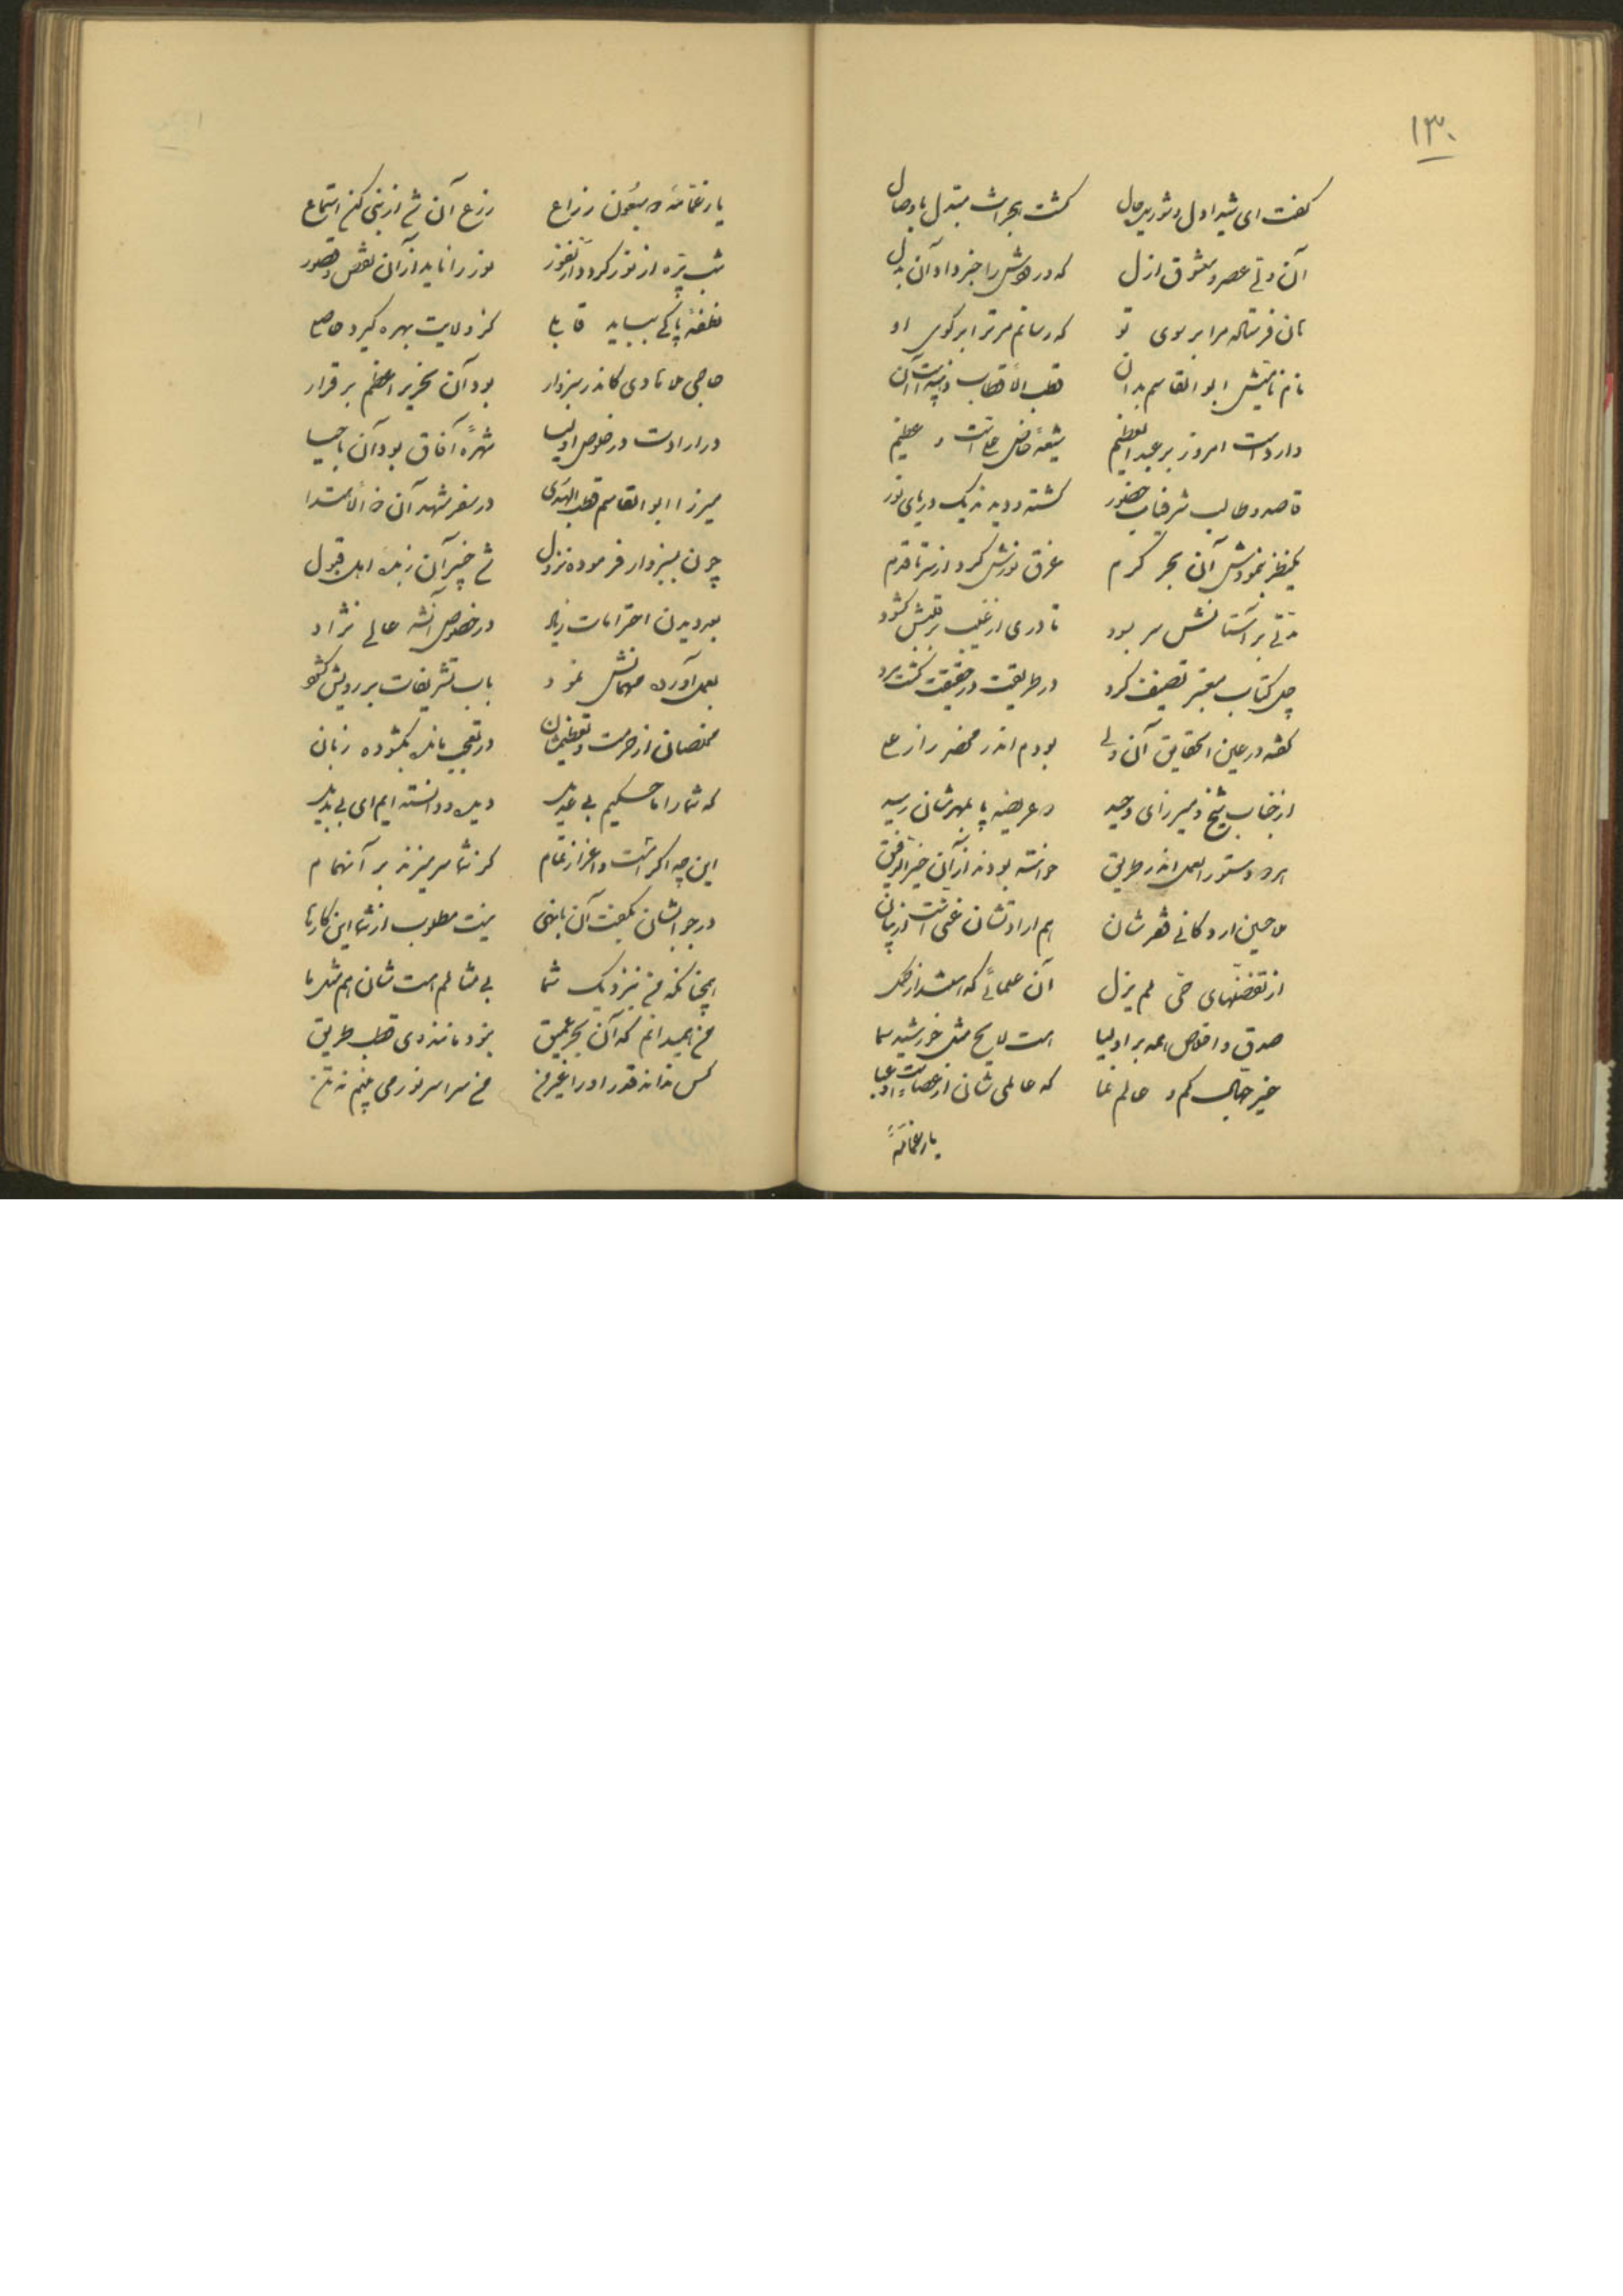 ۱۳۰
گفت ای شیدا دل و شوریده حال گشت هجرانت مبدل با وصال
آن ولی عصر و معشوق ازل که درویش را خبر داد آن بدل
نان فرستاده مرا بر سوی تو که رسانم مر ترا بر کوی او
نام نامیش ابوالقاسم بدان قطب الاقطاب
دارد است امروز بر عبدالعظیم شیعهٔ خاص علی است و عظیم
قاصد و طالب شرفیاب حضور گشته دیدند یک دریای نور
یکنظر نمودش آن بحر کرم غرق نورش کرد از سر تا قدم
مدتی بر آستانش سر بسود تا دری از غیب بر قلبش گشود
چل کتاب معتبر تصنیف کرد در طریقت در حقیقت گشت مرد
گفته در عین الحقایق آن ولی بودم اندر محضر راز علی
از جناب شیخ و میرزای وحید عریضه با مهرشان رسید
دستورالعمل اندر طریق خواسته بودند از آن خیر الرفیق
ملا حسین اردکانی قهرشان هم ارادتشان
از تفضلهای حی لم یزل آن علمائی که
صدق و اخلاص همه بر اولیا هست لایح مثل خورشید سما
غیر جهال کم و عالم نما که عالمی شان از عصا است و عبا
یا رغماتهٔ
یا رغماتهٔ زراع زرع آن شه از نبی کن استماع
شب پره از نور گردد از نفور نور را ناید از آن نقص و قصور
نطفهٔ پاکی بباید قابلی کز ولایت بهره گیرد حاصلی
حاجی ملا هادی کاندر سبزوار بود آن نحریر اعظم برقرار
در ارادت در خلوص اولیا شهرهٔ آفاق بود آن باحیا
میرزا ابوالقاسم قطب الهدی در سفر مشهد آن
چون بسبزوار فرموده نزول شه خبر آن زبدهٔ اهل قبول
بعد دیدن احترامات زیاد در خصوص آنشه عالی نژاد
بعمل آورده مهمانش نمود باب تشریفات بر رویش گشود
مختصان از حرمت و تعظیمشان در تعجب مانده بگشوده زبان
که شما را ما حکیم بی عدیل دیده و دانسته ایم ای بی بدیل
این چه اکرامست و اعزاز تمام کز شما سر میزند بر آنهمام
در جوابشان بگفت آن با بهی نیست مطلوب از شما این کارها
همچنانکه من بنزدیک شما بی مثالم هست شان هم مثل ما
من همیدانم که آن بحر عمیق بود مانند وی قطب طریق
کس نداند قدر او را غیر من من سراسر نور می بینم نه تن